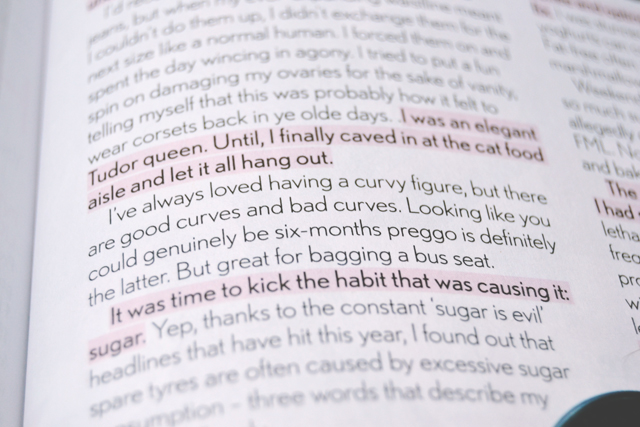 jeans, but when my
I couldn't do them up, I didn't exchange them for the
next size like a normal human. I forced them on and
spent the day wincing in agony. I tried to put a fun
spin on damaging my ovaries for the sake of vanity,
telling myself that this was probably how it felt to
wear corsets back in ye olde days. I was an elegant
Tudor queen. Until, I finally caved in at the cat food
aisle and let it all hang out.
I've always loved having a curvy figure, but there
are good curves and bad curves. Looking like you
could genuinely be six-months preggo is definitely
the latter. But great for bagging a bus seat.
It was time to kick the habit that was causing it:
sugar. Yep, thanks to the constant 'sugar is evil'
headlines that have hit this year, I found out that
spare tyres are often caused by excessive sugar
sumption – three words that describe my
so much
allegedly
FML. N
and bak
The
I had
letha
pro
w